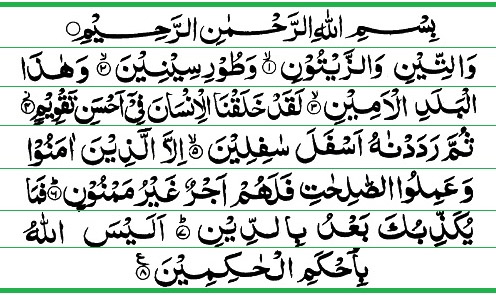 بِسْمِ اللهِ الرَّحْمٰنِ الرَّحِيْمِ
وَالتِّيْنِ وَالزَّيْتُوْنِ ۙ‏﴿۱﴾ وَطُوْرِ سِيْنِيْنَ ۙ‏﴿۲﴾ وَهٰذَا
الْبَلَدِ الْاَمِيْنِ ۙ‏﴿۳﴾ لَقَدْ خَلَقْنَا الْاِنْسَانَ فِیْۤ اَحْسَنِ تَقْوِيْمٍ ۫‏﴿۴﴾
ثُمَّ رَدَدْنٰهُ اَسْفَلَ سٰفِلِيْنَ ۙ‏﴿۵﴾ اِلَّا الَّذِيْنَ اٰمَنُوْا
وَعَمِلُوا الصّٰلِحٰتِ فَلَهُمْ اَجْرٌ غَيْرُ مَمْنُوْنٍ ؕ‏﴿۶﴾ فَمَا
يُكَذِّبُكَ بَعْدُ بِالدِّيْنِ ؕ‏﴿۷﴾ اَلَيْسَ اللهُ
بِاَحْكَمِ الْحٰكِمِيْنَ ﴿۸﴾ ع